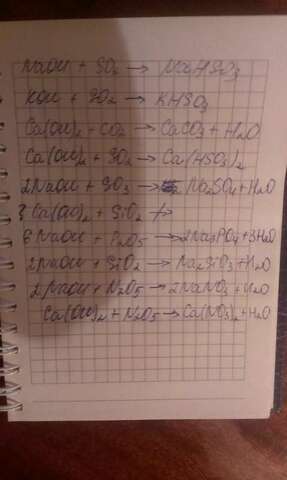 NaOH + SO₂ → NaHSO₃
KOH + SO₂ → KHSO₃
Ca(OH)₂ + CO₂ → CaCO₃ + H₂O
Ca(OH)₂ + SO₂ → Ca(HSO₃)₂
2NaOH + SO₃ → Na₂SO₄ + H₂O
Ca(OH)₂ + SiO₂ ↛
6NaOH + P₂O₅ → 2Na₃PO₄ + 3H₂O
2NaOH + SiO₂ → Na₂SiO₃ + H₂O
2NaOH + N₂O₅ → 2NaNO₃ + H₂O
Ca(OH)₂ + N₂O₅ → Ca(NO₃)₂ + H₂O